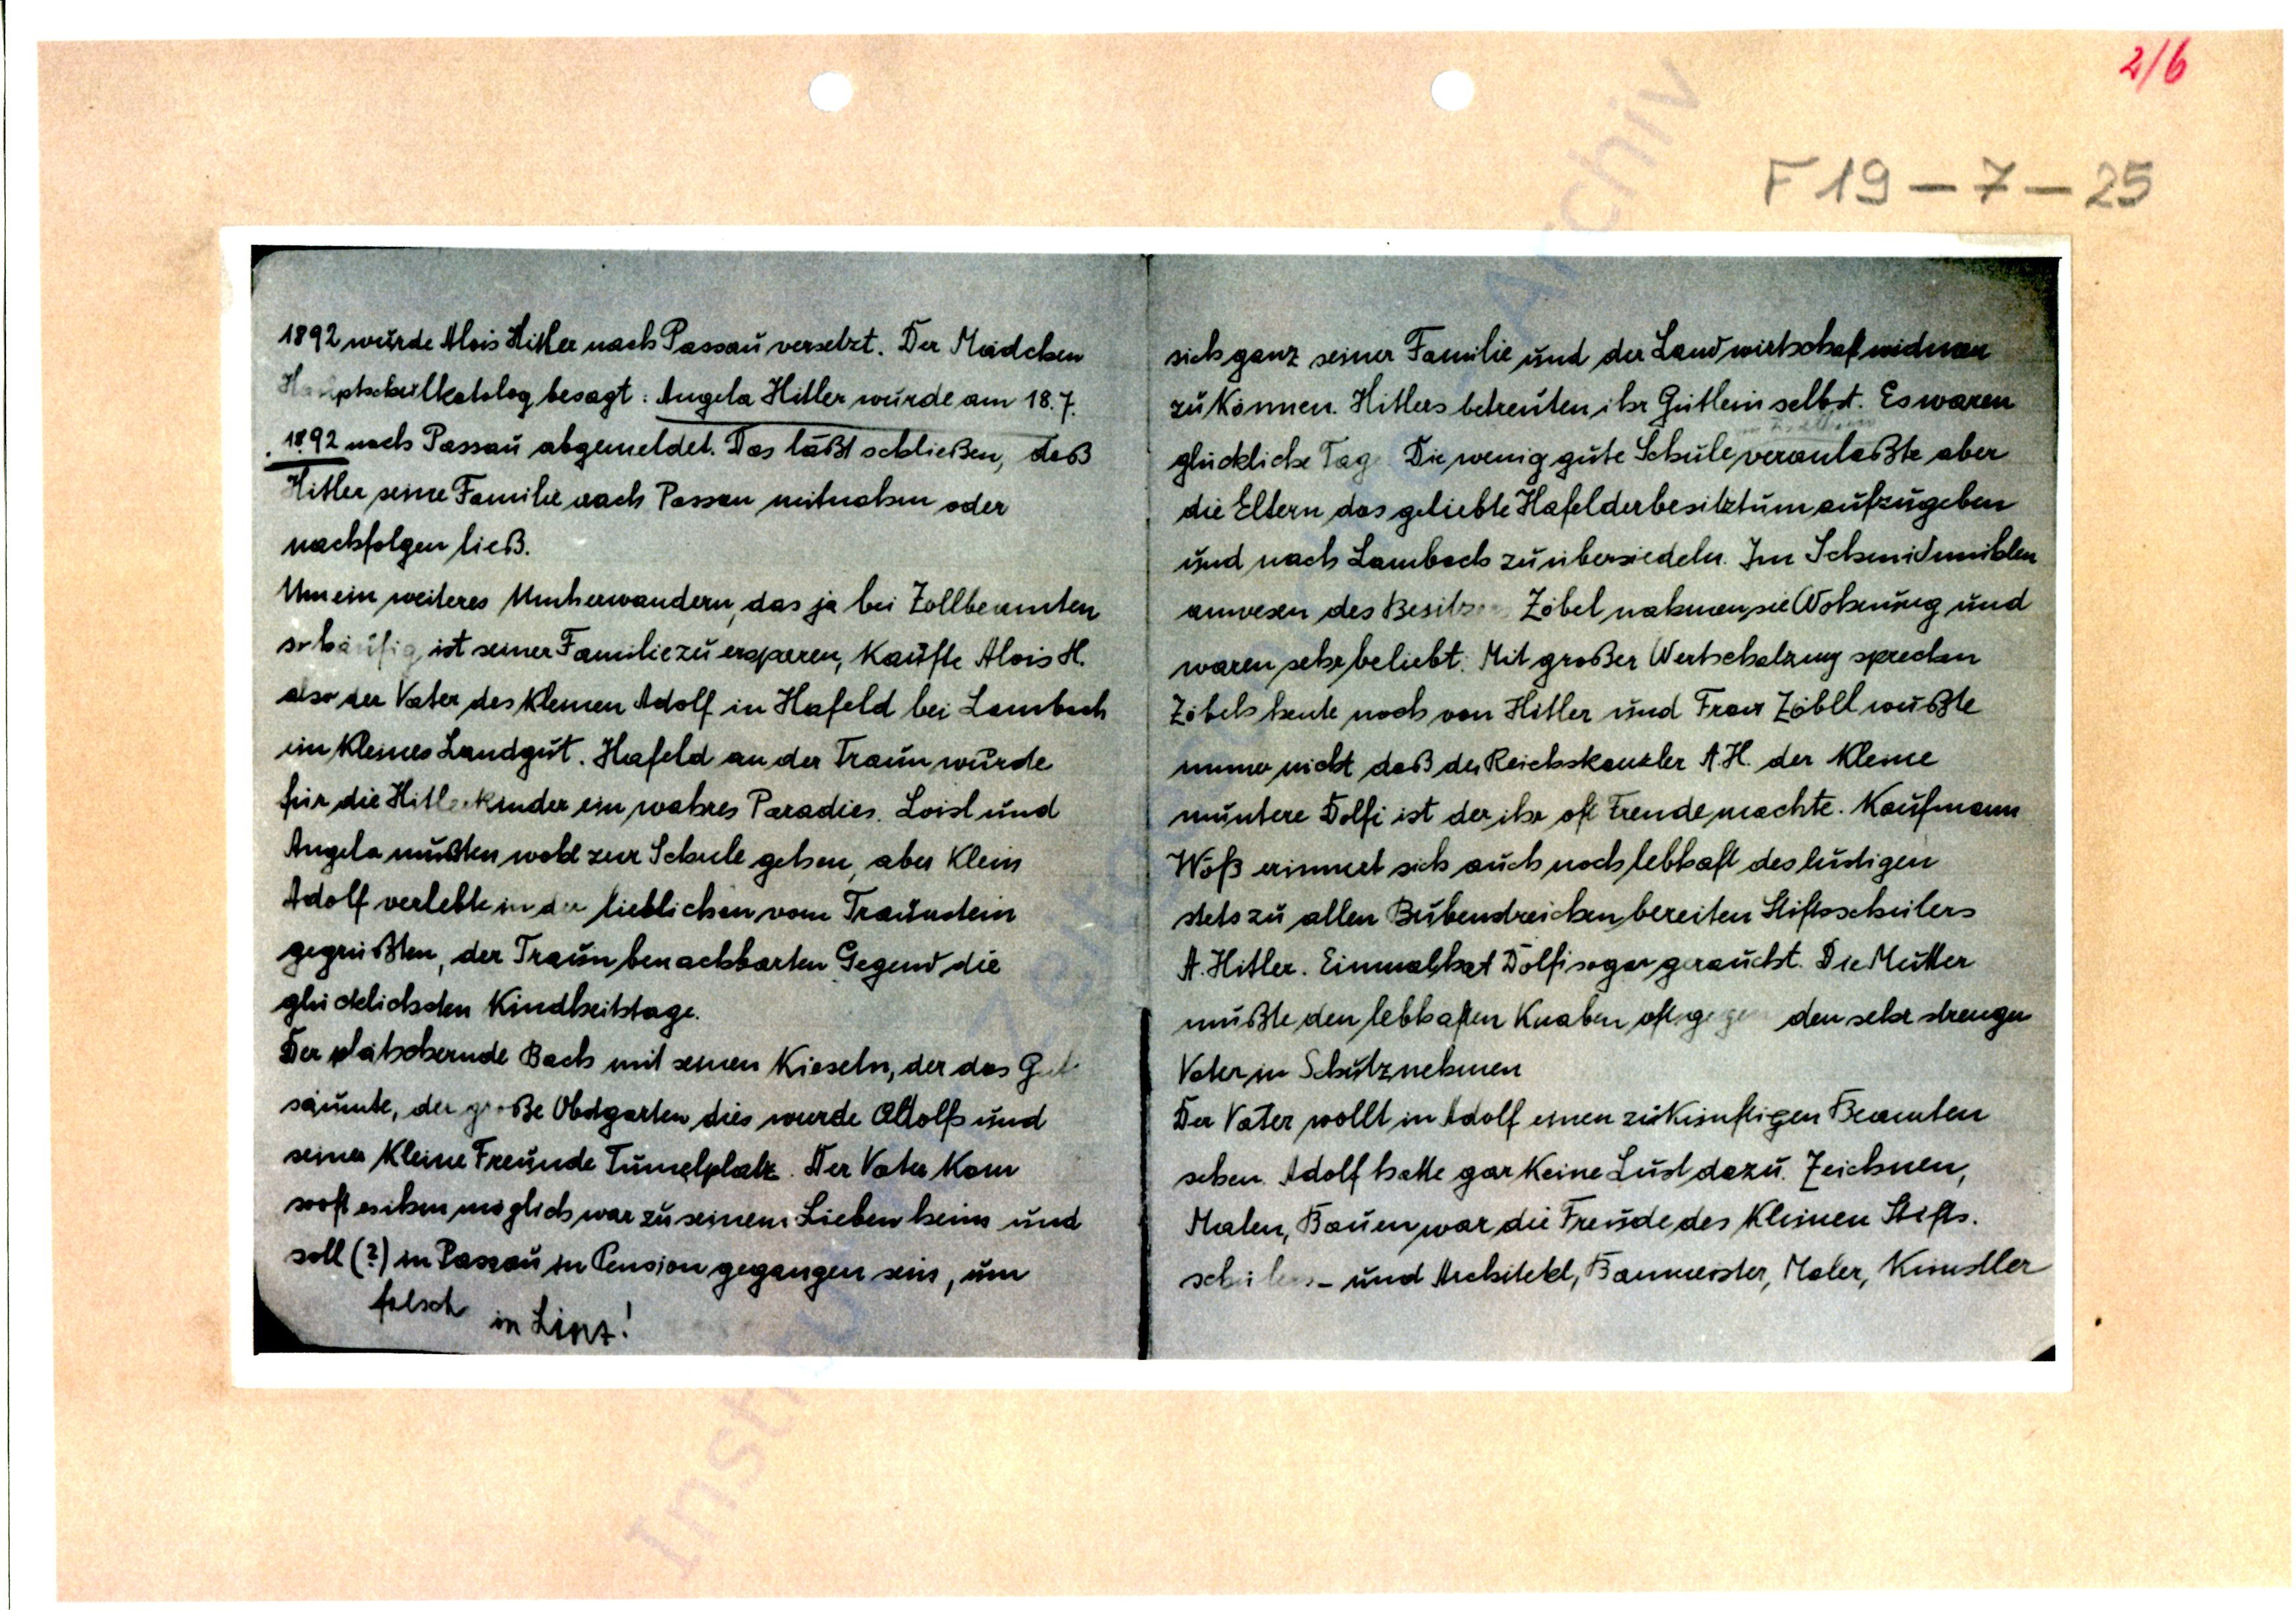 2/6
F 19 – 7 – 25
1892 wurde Alois Hitler nach Passau versetzt. Der Mädchen
Hauptschulkatolog besagt: Angela Hitler wurde am 18.7.
1892 nach Passau abgemeldet. Das läßt schließen, daß
Hitler seine Familie nach Passau mitnahm oder
nachfolgen ließ.
Um ein weiteres Umherwandern, das ja bei Zollbeamten
so häufig ist seiner Familie zu ersparen, kaufte Alois H.
also der Vater des kleinen Adolf in Hafeld bei Lambach
ein kleines Landgut. Hafeld an der Traun wurde
für die Hitlerkinder ein wahres Paradies. Loisl und
Angela mußten wohl zur Schule gehen, aber klein
Adolf verlebte in der lieblichen vom Traunstein
gegrüßten, der Traun benachbarten Gegend die
glücklichsten Kindheitstage.
Der plätschernde Bach mit seinen Kieseln, der das Gut
säumte, der große Obstgarten dies wurde Adolfs und
seiner kleine Freunde Tumelplatz. Der Vater kam
sooft es ihm möglich war zu seinem Lieben heim und
soll (?) in Passau in Pension gegangen sein, um
falsch in Linz!
sich ganz seiner Familie und der Landwirtschaf widmen
zu können. Hitlers betreuten ihr Gütlein selbst. Es waren
glückliche Tage Die wenig gute Schule veranlaßte aber
die Eltern das geliebte Hafelderbesitztum aufzugeben
und nach Lambach zu übersiedeln. Im Schmidmühlen
anwesen des Besitzers Zöbel nahmen sie Wohnung und
waren sehr beliebt. Mit großer Wertschätzung sprechen
Zöbels heute noch von Hitler und Frau Zöbll wußte
immer nicht daß der Reichskanzler A H. der kleine
muntere Dolfi ist der ihr oft Freude machte. Kaufmann
Wöß erinnert sich auch noch lebhaft des lustigen
stets zu allen Bubenstreichen bereiten Stiftsschülers
A. Hitler. Einmal hat Dolfi sogar geraucht. Die Mutter
mußte den lebhaften Knaben oft gegen den sehr strengen
Vater in Schutz nehmen
Der Vater wollt in Adolf einen zukünftigen Beamten
sehen. Adolf hatte gar keine Lust dazu. Zeichnen,
Malen, Bauen war die Freude des kleinen Stifts.
schülers – und Architekt, Baumeister, Maler, Künstler